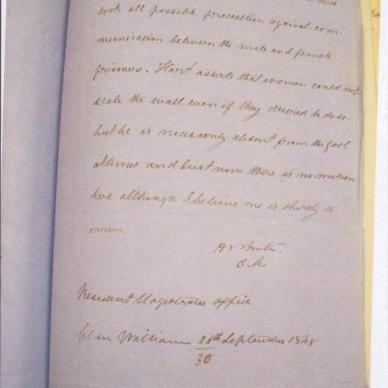 took all possible precaution against com
munication between the male and female
prisoners. Hart asserts that women could not
scale the wall even if they desired to do so
but he is necessarily absent from the gaol
at times and just now there is no matron
here although I believe one is shortly to
arrive
Resident Magistrates Office
William 28th September 18
30